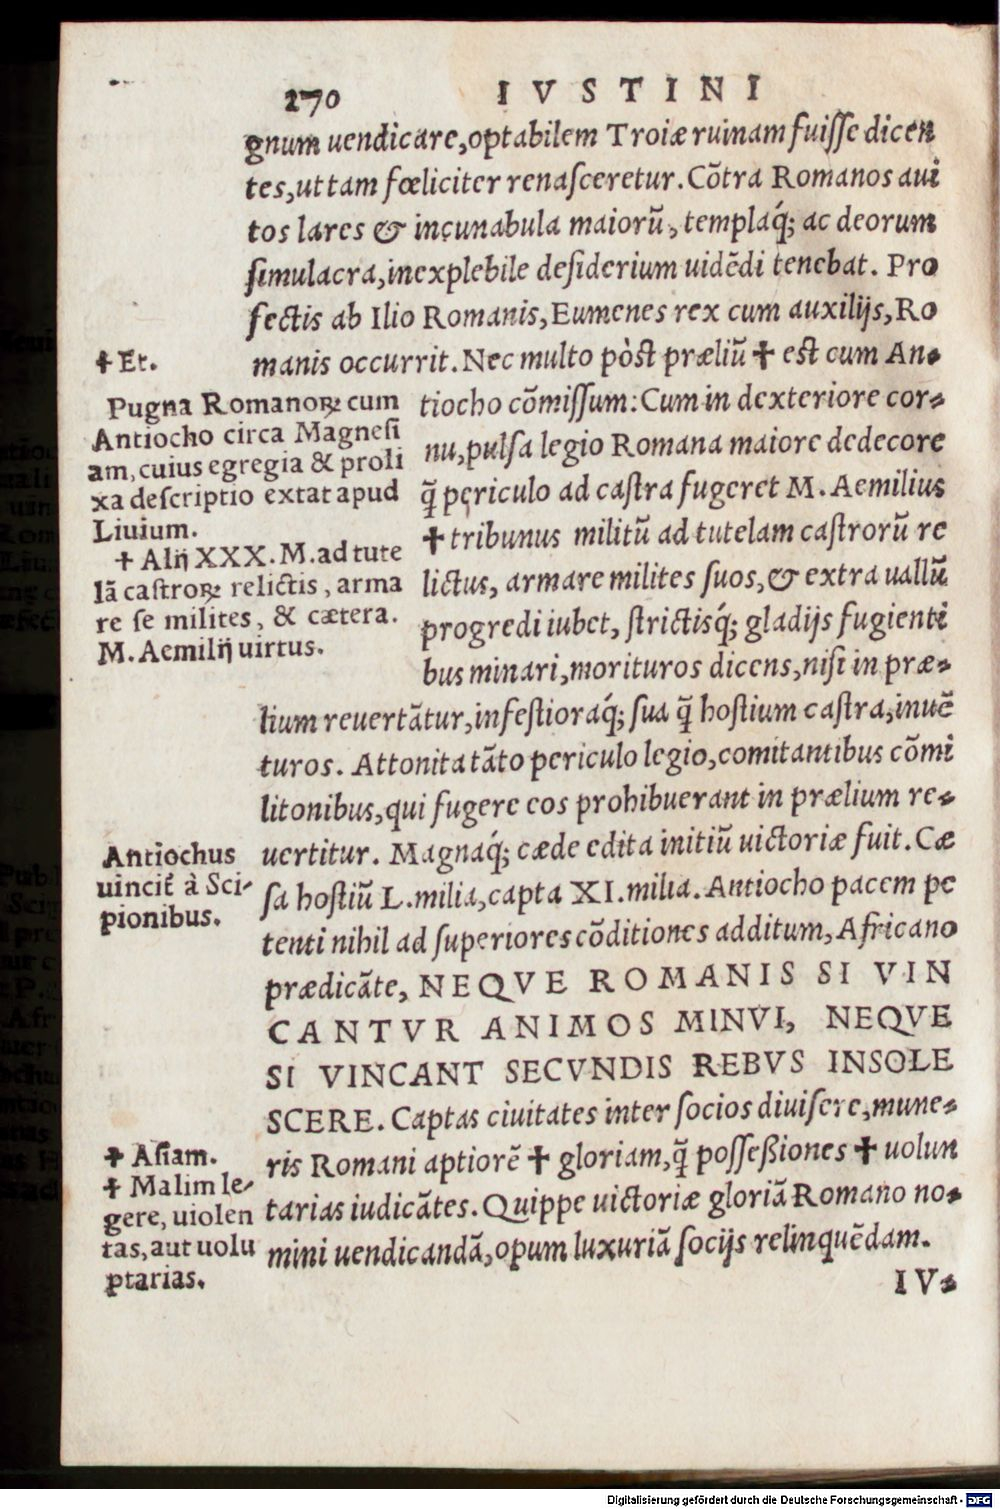 270 IVSTINI
gnum uendicare, optabilem Troiæ ruinam fuiſſe dicen
tes, ut tam fœliciter renaſceretur. Cōtra Romanos aui
tos lares & incunabula maiorū, templaq́; ac deorum
ſimulacra, inexplebile deſiderium uidēdi tenebat. Pro
fectis ab Ilio Romanis, Eumenes rex cum auxilijs, Ro
manis occurrit. Nec multo pòſt præliū ✝ eſt cum An-
tiocho cōmiſſum: Cum in dexteriore cor-
nu, pulſa legio Romana maiore dedecore
q̄ periculo ad caſtra fugeret M. Aemilius
✝ tribunus militū ad tutelam caſtrorū re
lictus, armare milites ſuos, & extra uallū
progredi iubet, ſtrictisq́; gladijs fugienti
bus minari, morituros dicens, niſi in præ-
lium reuertātur, infeſtioraq́; ſua q̄ hoſtium caſtra, inuē
turos. Attonita tāto periculo legio, comitantibus cōmi
litonibus, qui fugere eos prohibuerant in prælium re-
uertitur. Magnaq́; cæde edita initiū uictoriæ fuit. Cæ
ſa hoſtiū L. milia, capta XI. milia. Antiocho pacem pe
tenti nihil ad ſuperiores cōditiones additum, Africano
prædicāte, NEQVE ROMANIS SI VIN
CANTVR ANIMOS MINVI, NEQVE
SI VINCANT SECVNDIS REBVS INSOLE
SCERE. Captas ciuitates inter ſocios diuiſere, mune-
ris Romani aptiorē ✝ gloriam, q̄ poſſeßiones ✝ uolun
tarias iudicātes. Quippe uictoriæ gloriā Romano no-
mini uendicandā, opum luxuriā ſocijs relinquēdam.
IV-
✝ Et.
Pugna Romanoꝝ cum
Antiocho circa Magneſi
am, cuius egregia & proli
xa deſcriptio extat apud
Liuium.
✝ Alij XXX. M. ad tute
lā caſtroꝝ relictis, arma
re ſe milites, & cætera.
M. Aemilij uirtus.
Antiochus
uincit̄ à Sci-
pionibus.
✝ Aſiam.
✝ Malim le-
gere, uiolen
tas, aut uolu
ptarias.
Digitalisierung gefördert durch die Deutsche Forschungsgemeinschaft - DFG